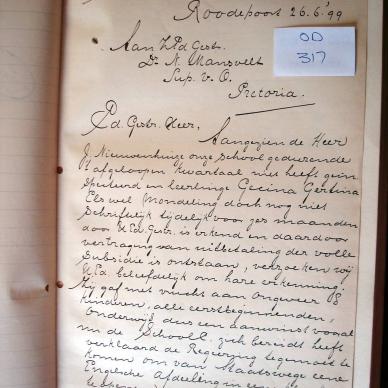 Roodepoort 26.6.'99
OD
317
Aan ZEd Gestr.
Dr. N. Mansvelt
Sup. v. O.
Pretoria.
Ed. Gestr. Heer,
Aangezien de Heer
J. Nieuwenhuize onze school gedurende
't afgeloopen kwartaal niet heeft geïn-
specteerd en leerlinge Gesina Gertina
Els wel mondeling doch nog niet
schriftelijk tijdelijk voor zes maanden
door U Ed. Gestr. is erkend en daardoor
vertraging van uitbetaling der volle
subsidie is ontstaan, verzoeken wij
U Ed. beleefdelijk om hare erkenning.
Zij gaf met vrucht aan ongeveer 18
kinderen, alle eerstbeginnenden,
onderwijs, dus een aanwinst vooral
nu de School zich bereid heeft
verklaard de Regeering tegemoet te
komen om van Staatswege eene
Engelsche Afdeeling in